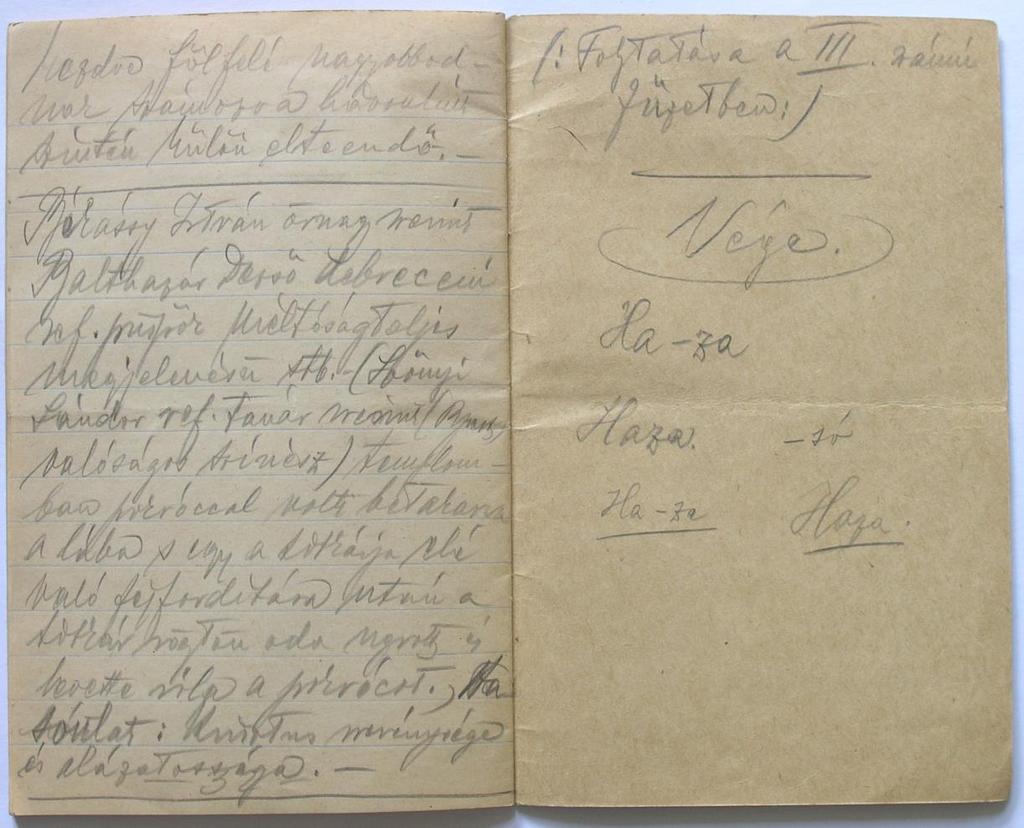 kezdve fölfelé nagyobbod-
va számozva
szintén külön elteendő. —
István őrnagy szerint
Balthazár Dezső debreceni
ref. püspök Méltóságteljes
megjelenése stb. – (Szőnyi
Sándor ref. tanár szerint
valóságos színész) templom-
ban pokróccal volt betakarva
a lába s egy a titkárja elé
való fejfordítása után a
titkár rögtön oda ugrott és
levette róla a pokrócot.) Ha-
sonlat: Krisztus szerénysége
és alázatossága. —
(: Folytatása a III. számú
füzetben:)
Vége.
Ha-za
Haza. -só
Ha-za Haza.